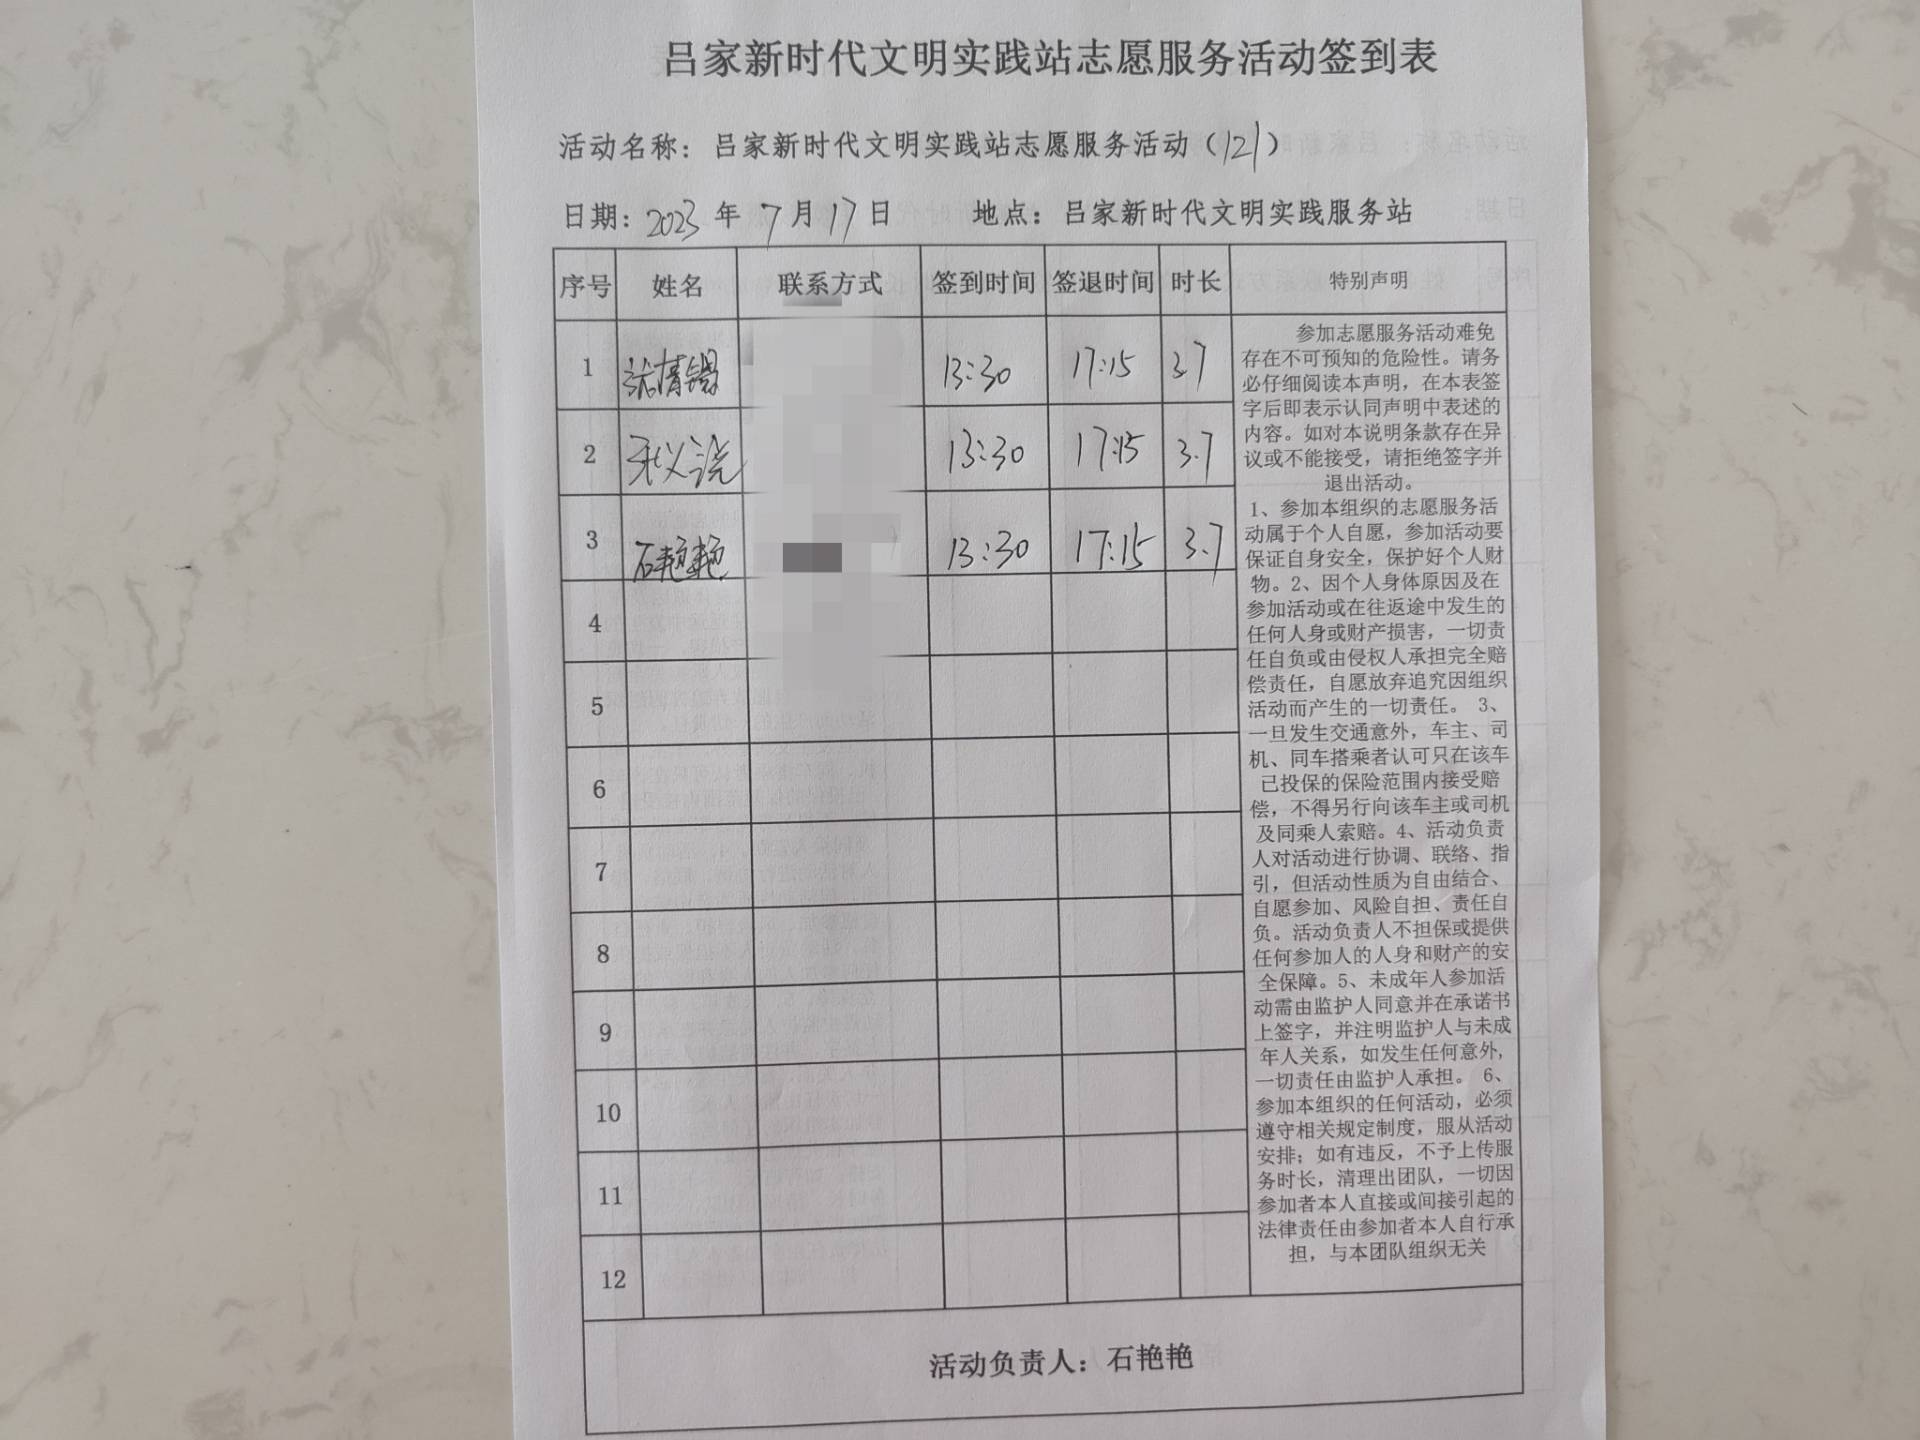 吕家新时代文明实践站志愿服务活动签到表
活动名称：吕家新时代文明实践站志愿服务活动（121）
日期：2023 年 7 月 17 日 地点：吕家新时代文明实践服务站
序号 姓名 联系方式 签到时间 签退时间 时长 特别声明
1 13:30 17:15 3.7
2 13:30 17:15 3.7
3 石艳艳 13:30 17:15 3.7
4
5
6
7
8
9
10
11
12
参加志愿服务活动难免
存在不可预知的危险性。请务
必仔细阅读本声明，在本表签
字后即表示认同声明中表述的
内容。如对本说明条款存在异
议或不能接受，请拒绝签字并
退出活动。
1、参加本组织的志愿服务活
动属于个人自愿，参加活动要
保证自身安全，保护好个人财
物。2、因个人身体原因及在
参加活动或在往返途中发生的
任何人身或财产损害，一切责
任自负或由侵权人承担完全赔
偿责任，自愿放弃追究因组织
活动而产生的一切责任。 3、
一旦发生交通意外，车主、司
机、同车搭乘者认可只在该车
已投保的保险范围内接受赔
偿，不得另行向该车主或司机
及同乘人索赔。4、活动负责
人对活动进行协调、联络、指
引，但活动性质为自由结合、
自愿参加、风险自担、责任自
负。活动负责人不担保或提供
任何参加人的人身和财产的安
全保障。5、未成年人参加活
动需由监护人同意并在承诺书
上签字，并注明监护人与未成
年人关系，如发生任何意外，
一切责任由监护人承担。 6、
参加本组织的任何活动，必须
遵守相关规定制度，服从活动
安排；如有违反，不予上传服
务时长，清理出团队，一切因
参加者本人直接或间接引起的
法律责任由参加者本人自行承
担，与本团队组织无关
活动负责人：石艳艳